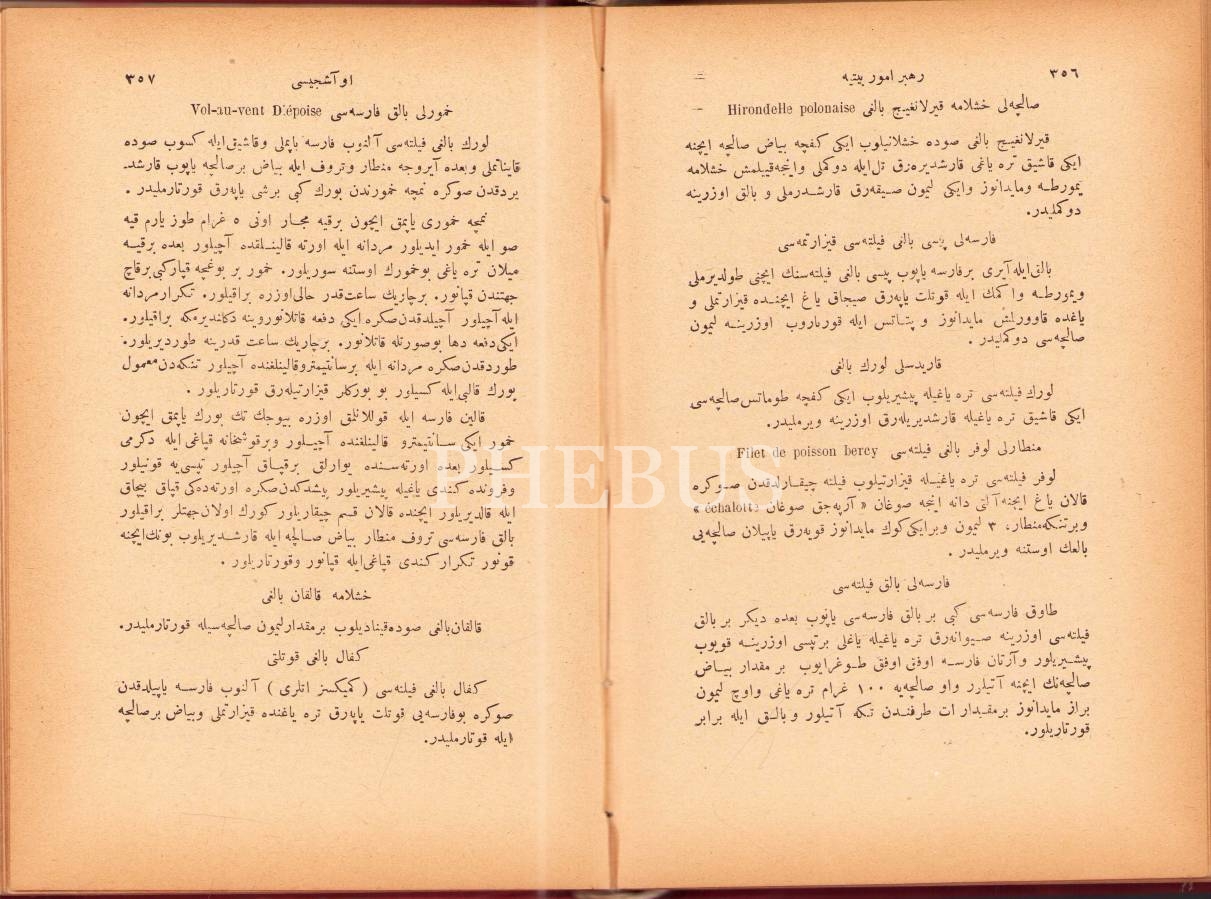 ٣٥٦
رهبر امور بيتيه
صالچه‌لى خشلامه قيرلانغيج بالغى Hirondelle polonaise
قيرلانغيج بالغى صوده خشلانيلوب ايكى كفچه بياض صالچه ايچنه
ايكى قاشيق تره ياغى قارشديره‌رق تل‌ايله دوكملى وانجه‌قييلمش خشلامه
يمورطه ومايدانوز وايكى ليمون صيقه‌رق قارشدرملى و بالق اوزرينه
دوكمليدر.
فارسه‌لى پيسى بالغى فيلته‌سى قيزارتمه‌سى
بالق‌ايله‌آيرى برفارسه ياپوب پيسى بالغى فيلته‌سنك ايچنى طولديرملى
ويمورطه واكمك ايله قوتلت ياپه‌رق صيجاق ياغ ايچنده قيزارتملى و
ياغده قاوورلمش مايدانوز و پتاتس ايله قورتاروب اوزرينه ليمون
صالچه‌سى دوكمليدر .
قاريدسلى لورك بالغى
لورك فيلته‌سى تره ياغيله پيشيريلوب ايكى كفچه طوماتس‌صالچه‌سى
ايكى قاشيق تره ياغيله قارشديريله‌رق اوزرينه ويرمليدر.
منطارلى لوفر بالغى فيلته‌سى Filet de poisson bercy
لوفر فيلته‌سى تره ياغيله قيزارتيلوب فيلته چيقارلدقدن صوكره
قالان ياغ ايچنه آلتى دانه انجه صوغان « آرپه‌جق صوغان échalotte »
وبرتنكه‌منطار، ٣ ليمون وبرايكى‌كوك مايدانوز قويه‌رق ياپيلان صالچه‌يى
بالغك اوستنه ويرمليدر .
فارسه‌لى بالق فيلته‌سى
طاوق فارسه‌سى كبى بر بالق فارسه‌سى ياپوب بعده ديكر بر بالق
فيلته‌سى اوزرينه صيوانه‌رق تره ياغيله ياغلى برتپسى اوزرينه قويوب
پيشيريلور وآرتان فارسه اوفق اوفق طوغرايوب بر مقدار بياض
صالچه‌نك ايچنه آتيلور واو صالچه‌يه ١٠٠ غرام تره ياغى واوچ ليمون
براز مايدانوز برمقدار ات طرفندن تكه آتيلور وبالق ايله برابر
قورتاريلور.
٣٥٧
او آشجيسى
خمورلى بالق فارسه‌سى Vol-au-vent Diépoise
لورك بالغى فيلته‌سى آلنوب فارسه ياپملى وقاشيق‌ايله كسوب صوده
قايناتملى وبعده آيروجه منطار وتروف ايله بياض برصالچه ياپوب قارشد-
يردقدن صوكره نمچه خمورندن بورك كبى برشى ياپه‌رق قورتارمليدر .
نمچه خمورى ياپمق ايچون برقيه مجار اونى ٥ غرام طوز يارم قيه
صو ايله خمور ايديلور مردانه ايله اورته قالينلقده آچيلور بعده برقيه
ميلان تره ياغى بوخمورك اوستنه سوريلور. خمور بر بوغچه قپاركبى‌برقاچ
جهتندن قپانور. برچاريك ساعت‌قدر حالى‌اوزره براقيلور. تكرارمردانه
ايله‌آچيلور آچيلدقدن‌صكره‌ايكى دفعه قاتلانوروينه دكلنديرمكه براقيلور.
ايكى‌دفعه دها بوصورتله قاتلانور. برچاريك ساعت قدرينه طورديريلور.
طوردقدن‌صكره مردانه ايله برسانتيمتروقالينلغنده آچيلور تنكه‌دن‌معمول
بورك قالبى‌ايله كسيلور بو بوركلر قيزارتيله‌رق قورتاريلور .
قالين فارسه ايله قوللانلمق اوزره بيوجك تك بورك ياپمق ايچون
خمور ايكى سانتيمترو قالينلغنده آچيلور وبرقوشخانه قپاغى ايله دكرمى
كسيلور بعده اورته‌سنده يوارلق برقپاق آچيلور تپسى‌يه قونيلور
وفرونده كندى ياغيله پيشيريلور پيشدكدن‌صكره اورته‌ده‌كى قپاق بيچاق
ايله قالديريلور ايچنده قالان قسم چيقاريلور كورك اولان‌جهتلر براقيلور
بالق فارسه‌سى تروف منطار بياض صالچه ايله قارشديريلوب بونك‌ايچنه
قونور تكرار كندى قپاغى‌ايله قپانور وقورتاريلور .
خشلامه قالقان بالغى
قالقان‌بالغى صوده‌قيناديلوب برمقدارليمون صالچه‌سيله قورتارمليدر.
كفال بالغى قوتلتى
كفال بالغى فيلته‌سى ( كميكسز اتلرى ) آلنوب فارسه ياپيلدقدن
صوكره بوفارسه‌يى قوتلت ياپه‌رق تره ياغنده قيزارتملى وبياض برصالچه
ايله قوتارمليدر.
PHEBUS